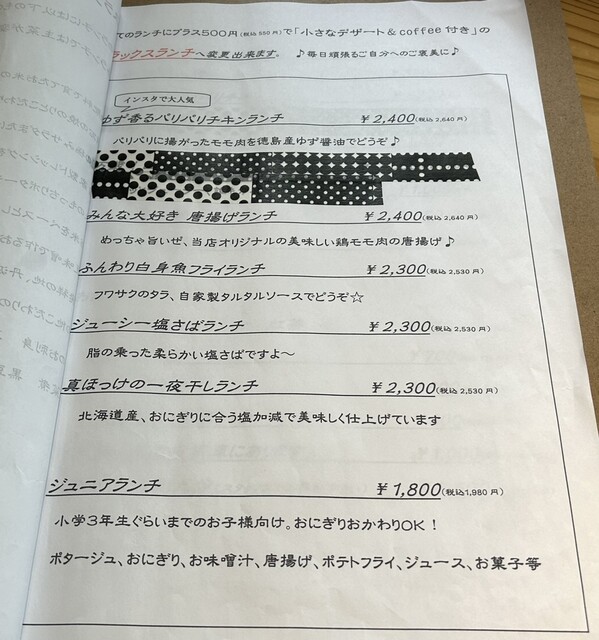 てのランチにプラス500円(税込550円)で「小さなデザート&coffee付き」の
ラックスランチへ変更出来ます。 ♪毎日頑張るご自分へのご褒美に♪
インスタで大人気
ゆず香るパリパリチキンランチ ￥2,400(税込2,640円)
パリパリに揚がったモモ肉を徳島産ゆず醤油でどうぞ♪
みんな大好き 唐揚げランチ ￥2,400(税込2,640円)
めっちゃ旨いぜ、当店オリジナルの美味しい鶏モモ肉の唐揚げ♪
ふんわり白身魚フライランチ ￥2,300(税込2,530円)
フワサクのタラ、自家製タルタルソースでどうぞ☆
ジューシー塩さばランチ ￥2,300(税込2,530円)
脂の乗った柔らかい塩さばですよ～
真ほっけの一夜干しランチ ￥2,300(税込2,530円)
北海道産、おにぎりに合う塩加減で美味しく仕上げています
ジュニアランチ ￥1,800(税込1,980円)
小学3年生ぐらいまでのお子様向け。おにぎりおかわりOK！
ポタージュ、おにぎり、お味噌汁、唐揚げ、ポテトフライ、ジュース、お菓子等